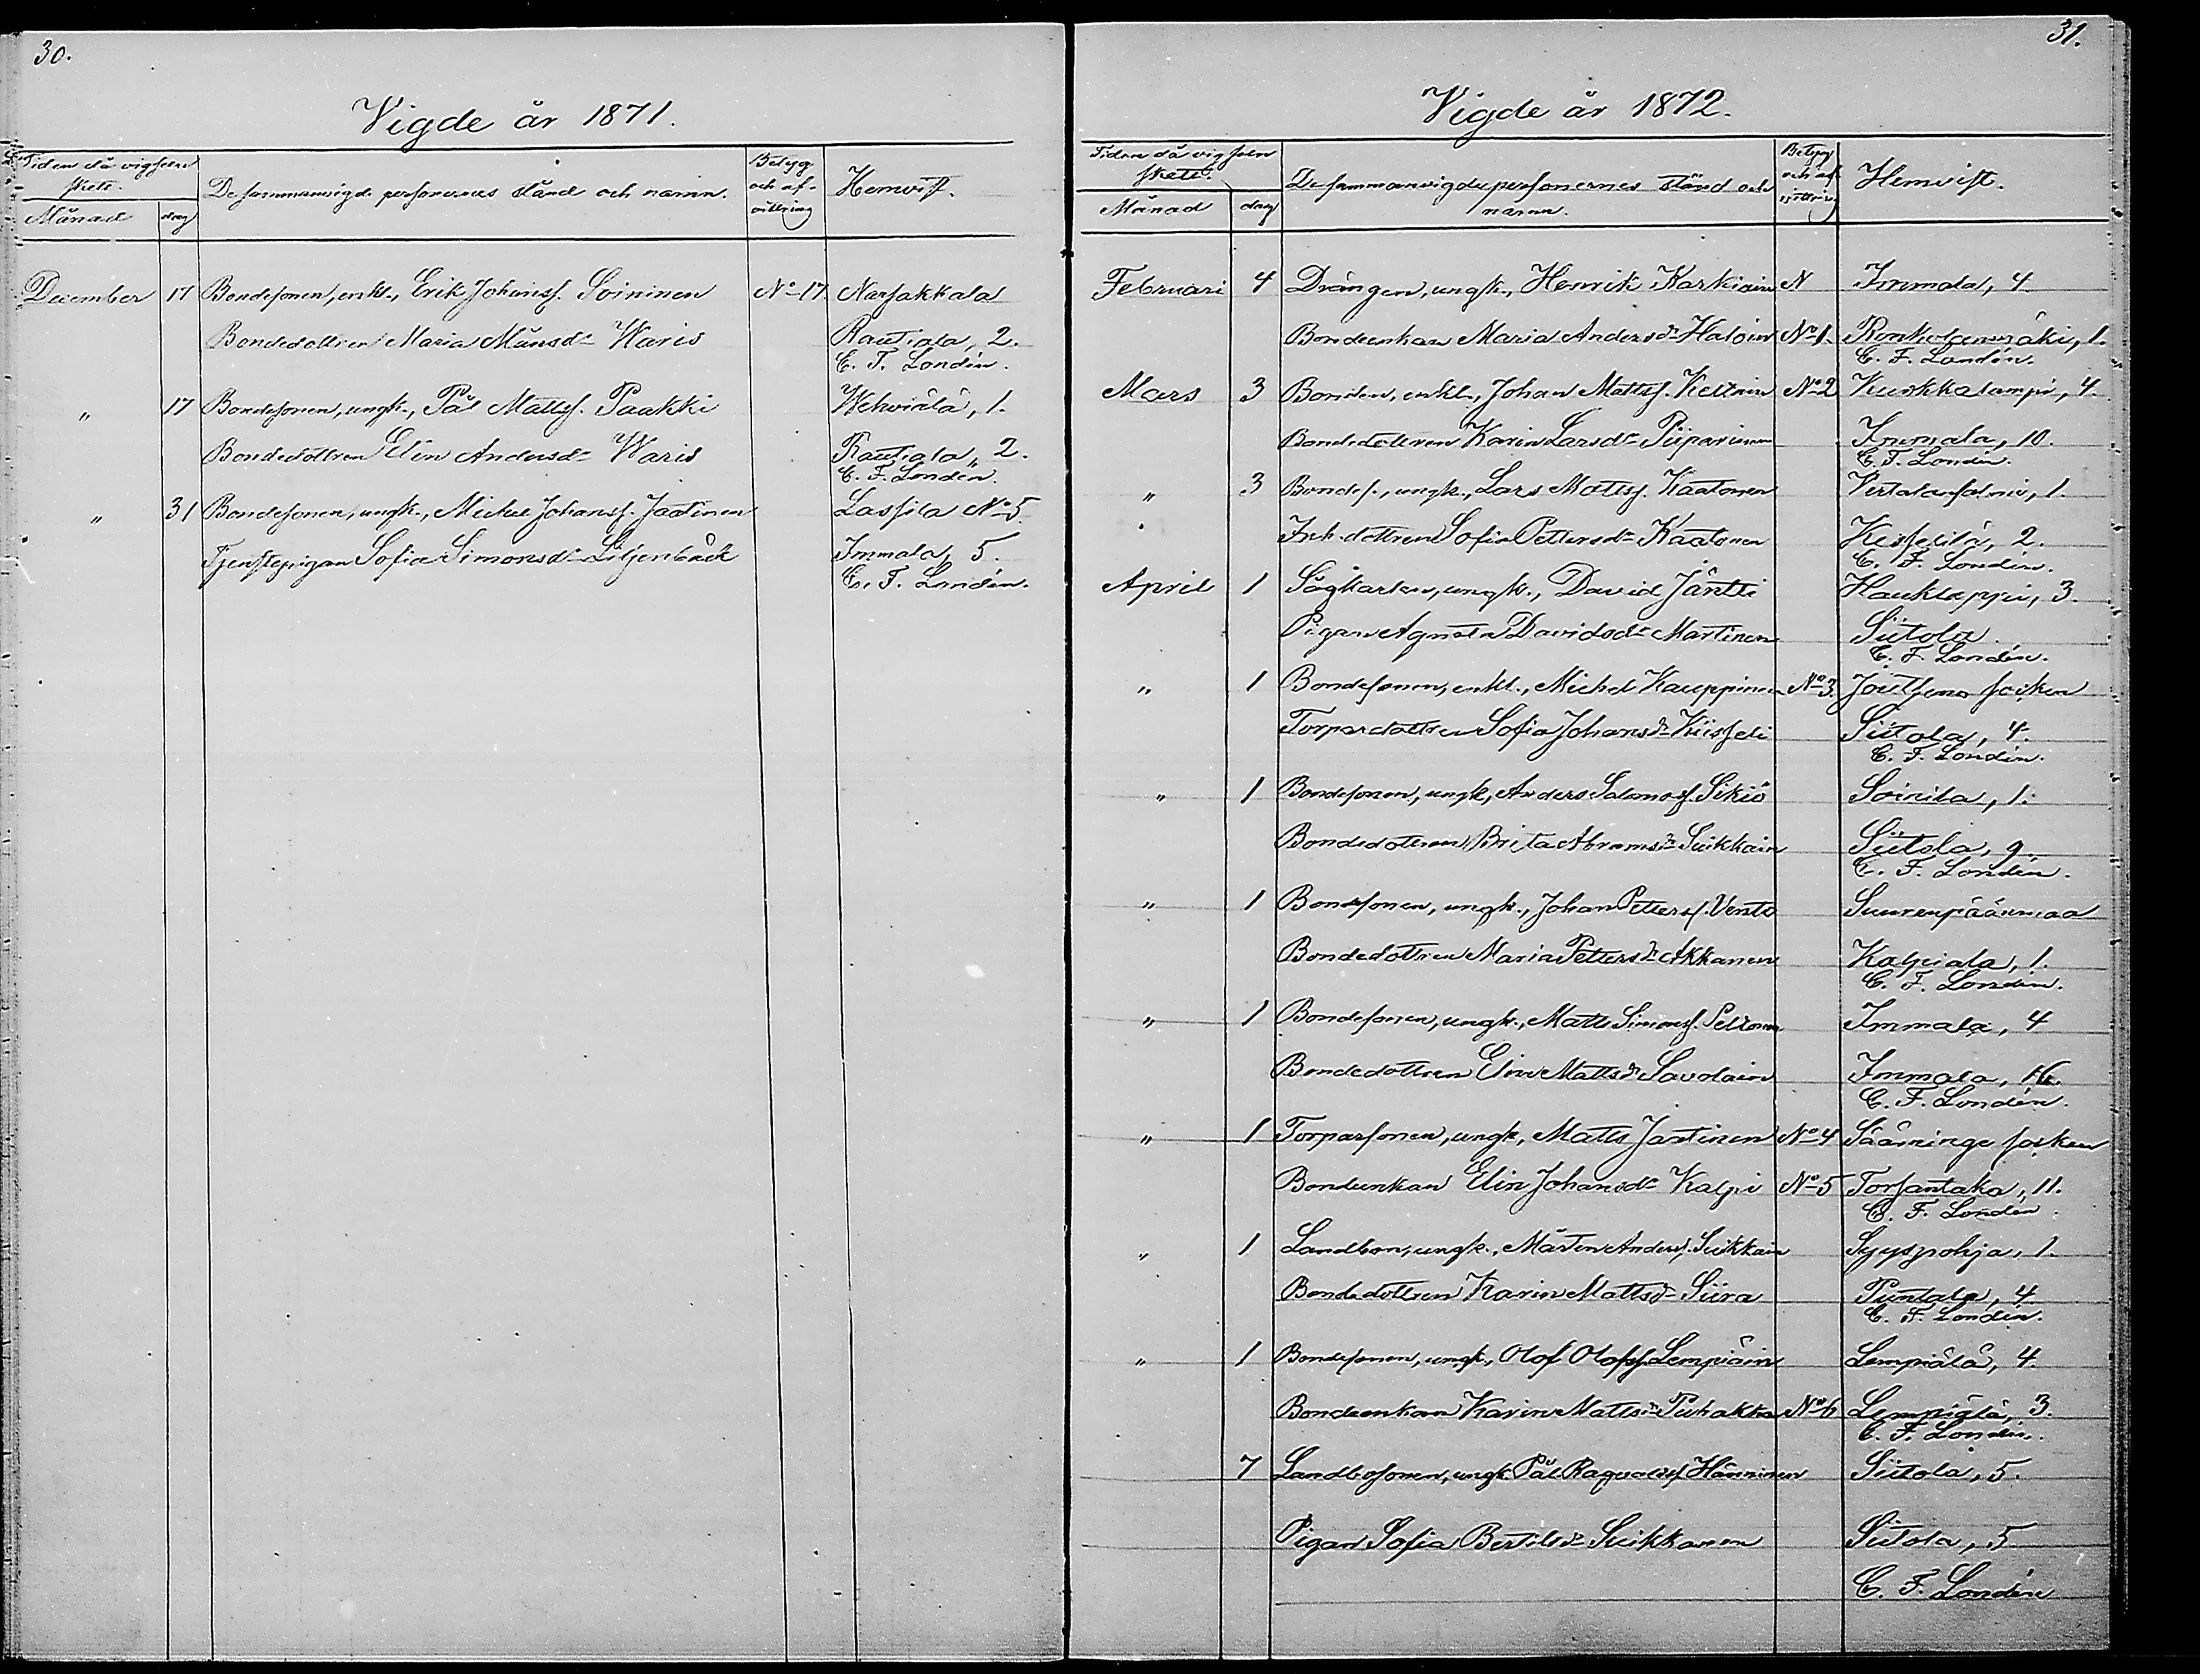 30.
Vigde år 1871.
Tiden då vigseln skett.
Månad
dag
De sammanvigde personernes stånd och namn.
Betyg och afvittring
Hemvist.
December 17 Bondesonen, enkl., Erik Johanss. Soininen No 17 Narsakkala
Bondedottren Maria Månsdr Waris Rautiala, 2.
C. F. Londén.
" 17 Bondesonen, ungk., Pål Matts. Paakki Wehviälä, 1.
Bondedottren Elin Andersdr Waris Rautiala, 2.
C. F. Londén.
" 31 Bondesonen, ungk., Michel Johanss. Jaatinen Lassila No 5.
Tjenstepigan Sofia Simonsdr Liljenbäck Immala, 5.
C. F. Londén.
31.
Vigde år 1872.
Tiden då vigseln skett.
Månad
dag
De sammanvigde personernes stånd och namn.
Betyg och afvittring
Hemvist.
Februari 4 Drängen, ungk., Henrik Karkiain N Immala, 4
Bondeenkan Maria Andersdr Haloin No 1. 1.
C. F. Londén.
Mars 3 Bonden, enkl., Johan Mattss. No 2 Kurkkalampi, 4.
Bondedottren Karin Larsdr Piiparinen Immala, 10.
C. F. Londén.
" 3 Bondes., ungk., Lars Mattss. Kaatonen 1.
Inh. dottren Sofia Pettersdr Kaatonen 2.
C. F. Londén.
April 1 Sågkarlen, ungk., David Jäntti Hauklappi, 3.
Pigan Agneta Davidsdr Martinen Siitola.
C. F. Londén.
" 1 Bondesonen, enkl., Michel Kauppinen No 3. Joutseno socken
Torparedottren Sofia Johansdr Kiisseli Siitola, 4.
C. F. Londén.
" 1 Bondesonen, ungk., Anders Salomoss. Sikiö Soinila, 1.
Bondedottren Brita Abramsdr Suikkain Siitola, 9.
C. F. Londén.
" 1 Bondesonen, ungk., Johan Petterss. Vento Suurenpäänmaa
Bondedottren Maria Pettersdr Akkanen Kalpiala, 1.
C. F. Londén.
" 1 Bondesonen, ungk., Matts Simonss. Peltonen Immala, 4
Bondedottren Elin Mattsdr Savolain Immala, 16.
C. F. Londén.
" 1 Torparsonen, ungk., Matts Jantinen No 4 Sääminge socken
Bondeenkan Elin Johansdr Kalpi No 5 Torsantaka, 11.
C. F. Londén.
" 1 Landbon, ungk., Mårten Anderss. Suikkain Syyspohja, 1.
Bondedottren Karin Mattsdr Siira Puntala, 4
C. F. Londén.
" 1 Bondesonen, ungk., Olof Olofss. Lempiäin Lempiälä, 4.
Bondeenkan Karin Mattsdr Puhakka No 6 Lempiälä, 3.
C. F. Londén.
7 Landbosonen, ungk. Pål Hänninen Siitola, 5.
Pigan Sofia Bertilsdr Suikkanen Siitola, 5
C. F. Londén